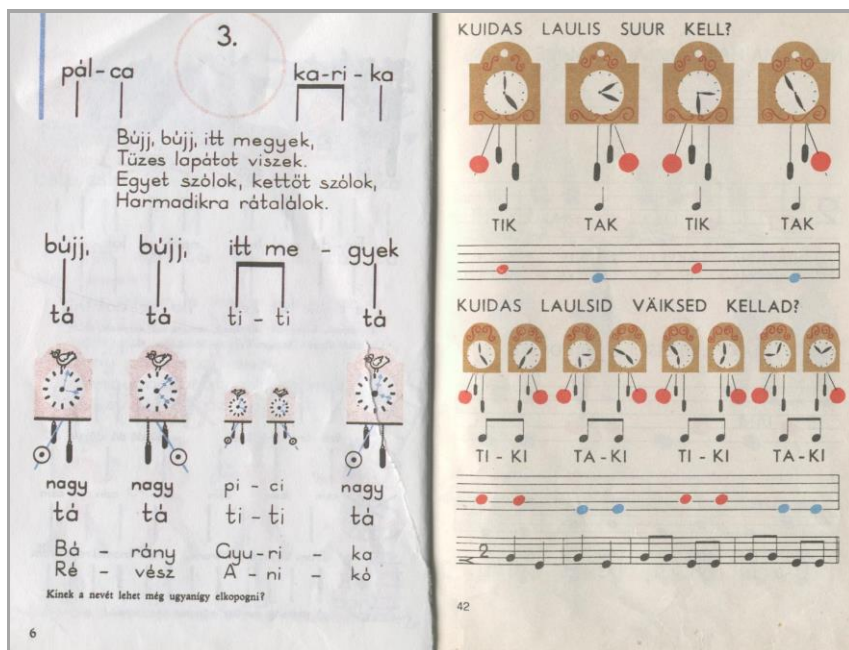 3.
pál-ca ka-ri-ka
Bújj, bújj, itt megyek,
Tüzes lapátot viszek.
Egyet szólok, kettőt szólok,
Harmadikra rátalálok.
bújj, bújj, itt me - gyek
tá tá ti - ti tá
nagy nagy pi - ci nagy
tá tá ti - ti tá
Bá - rány Gyu-ri - ka
Ré - vész A - ni - kó
Kinek a nevét lehet még ugyanígy elkopogni?
6
KUIDAS LAULIS SUUR KELL?
TIK TAK TIK TAK
KUIDAS LAULSID VÄIKSED KELLAD?
TI - KI TA-KI TI - KI TA-KI
2
42